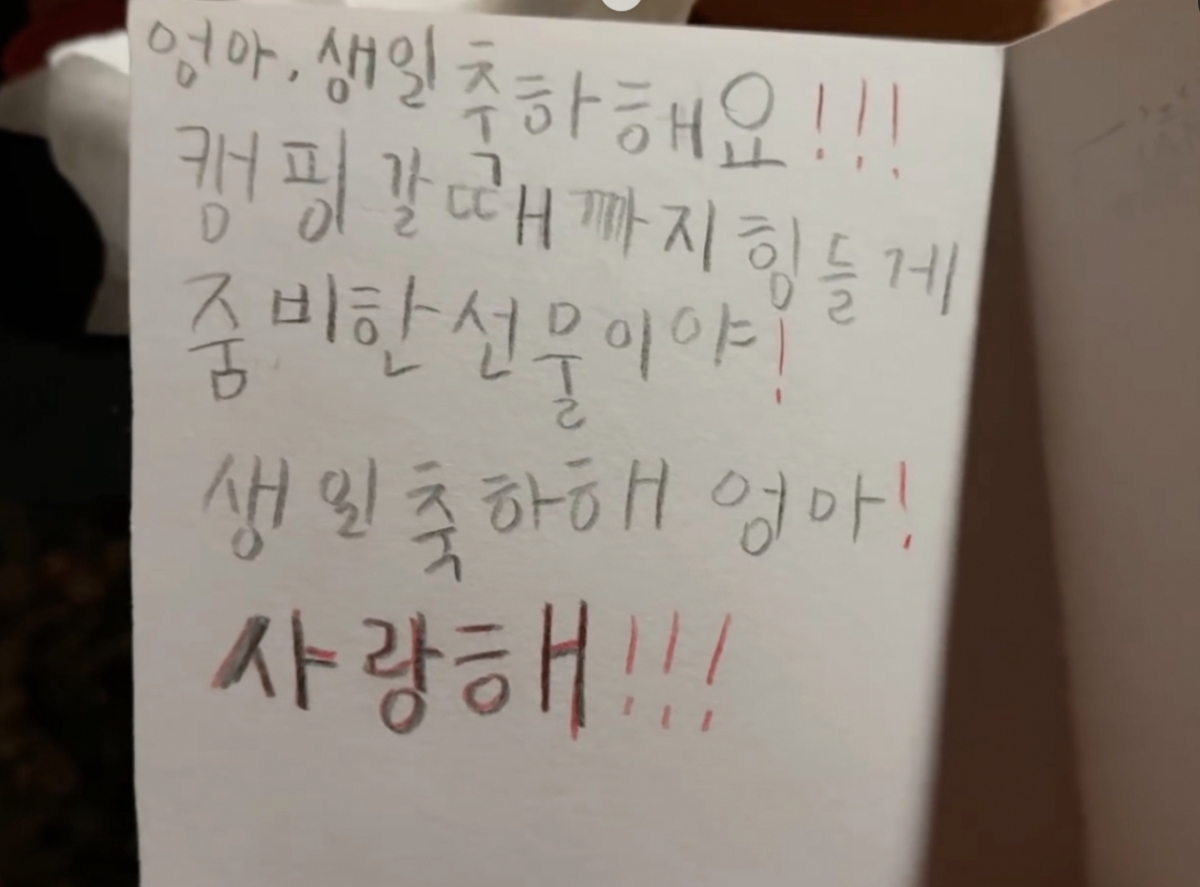 엉아, 생일 추하해요!!!
캠핑 갈 때까지 힘들게
줌비한 선물이야!
생일축하해 엉아!
사랑해!!!